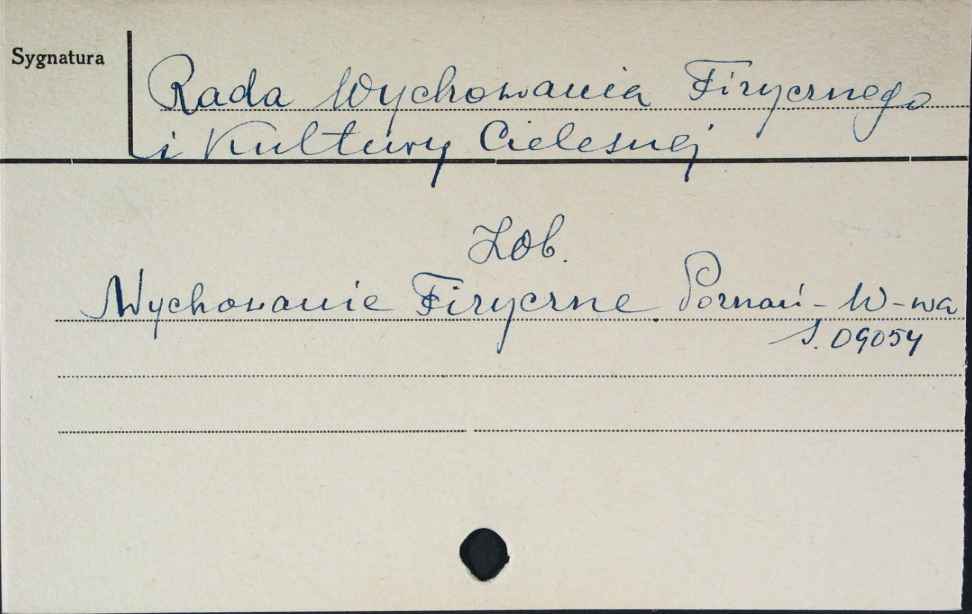 Sygnatura
Rada Wychowania Fizycznego
i Kultury Cielesnej
Zob.
Wychowanie Fizyczne. Poznań - W-wa
S. 09054